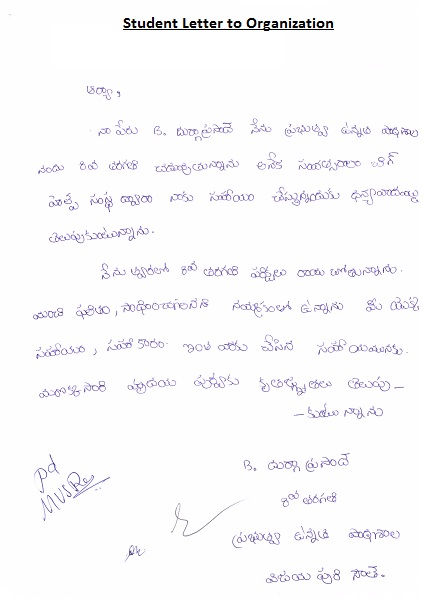 Student Letter to Organization
ఆర్యా,
నా పేరు B. దుర్గాప్రసాద్ నేను ప్రభుత్వ ఉన్నత పాఠశాల
నందు 8వ తరగతి చదువుచున్నాను అనేక సంవత్సరాలు
హెల్ప్ సంస్థ ద్వారా నాకు సహాయం చేస్తున్నందుకు ధన్యవాదములు
తెలుపుకుంటున్నాను.
నేను త్వరలో 8వ తరగతి పరీక్షలు రాయబోతున్నాను.
మంచి ఫలితం, సాధించగలననే నమ్మకంలో ఉన్నాను మీ యొక్క
సహాయం, సహకారం ఇంత వరకు చేసిన సహాయమునకు.
మరొక్కసారి హృదయ పూర్వక కృతజ్ఞతలు తెలుపు-
-కుంటున్నాను
B. దుర్గా ప్రసాద్
8వ తరగతి
ప్రభుత్వ ఉన్నత పాఠశాల
విజయ పురి సౌత్.